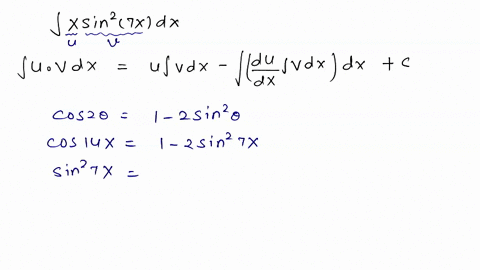 ∫ x sin²(7x) dx
u v
∫ u∘v dx = u ∫ v dx - ∫ (du/dx ∫ v dx) dx + c
cos2θ = 1 - 2 sin²θ
cos 14x = 1 - 2 sin² 7x
sin² 7x =